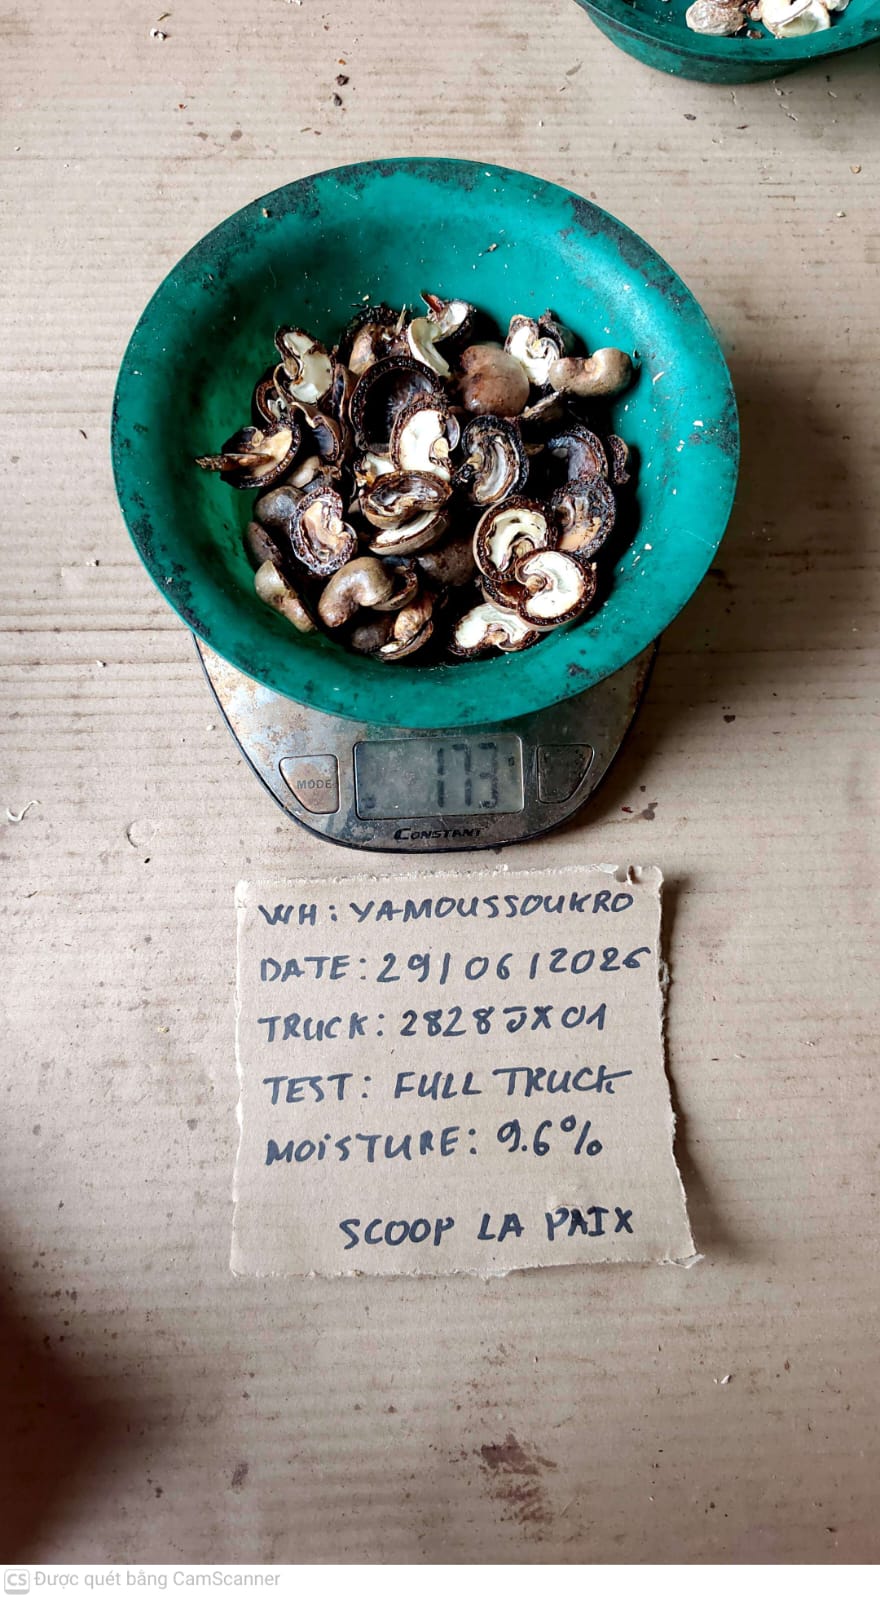 MODE
173
CONSTANT
WH: YAMOUSSOUKRO
DATE: 29/06/2026
TRUCK: 2828JX01
TEST: FULL TRUCK
MOISTURE: 9.6%
SCOOP LA PAIX
CS Được quét bằng CamScanner